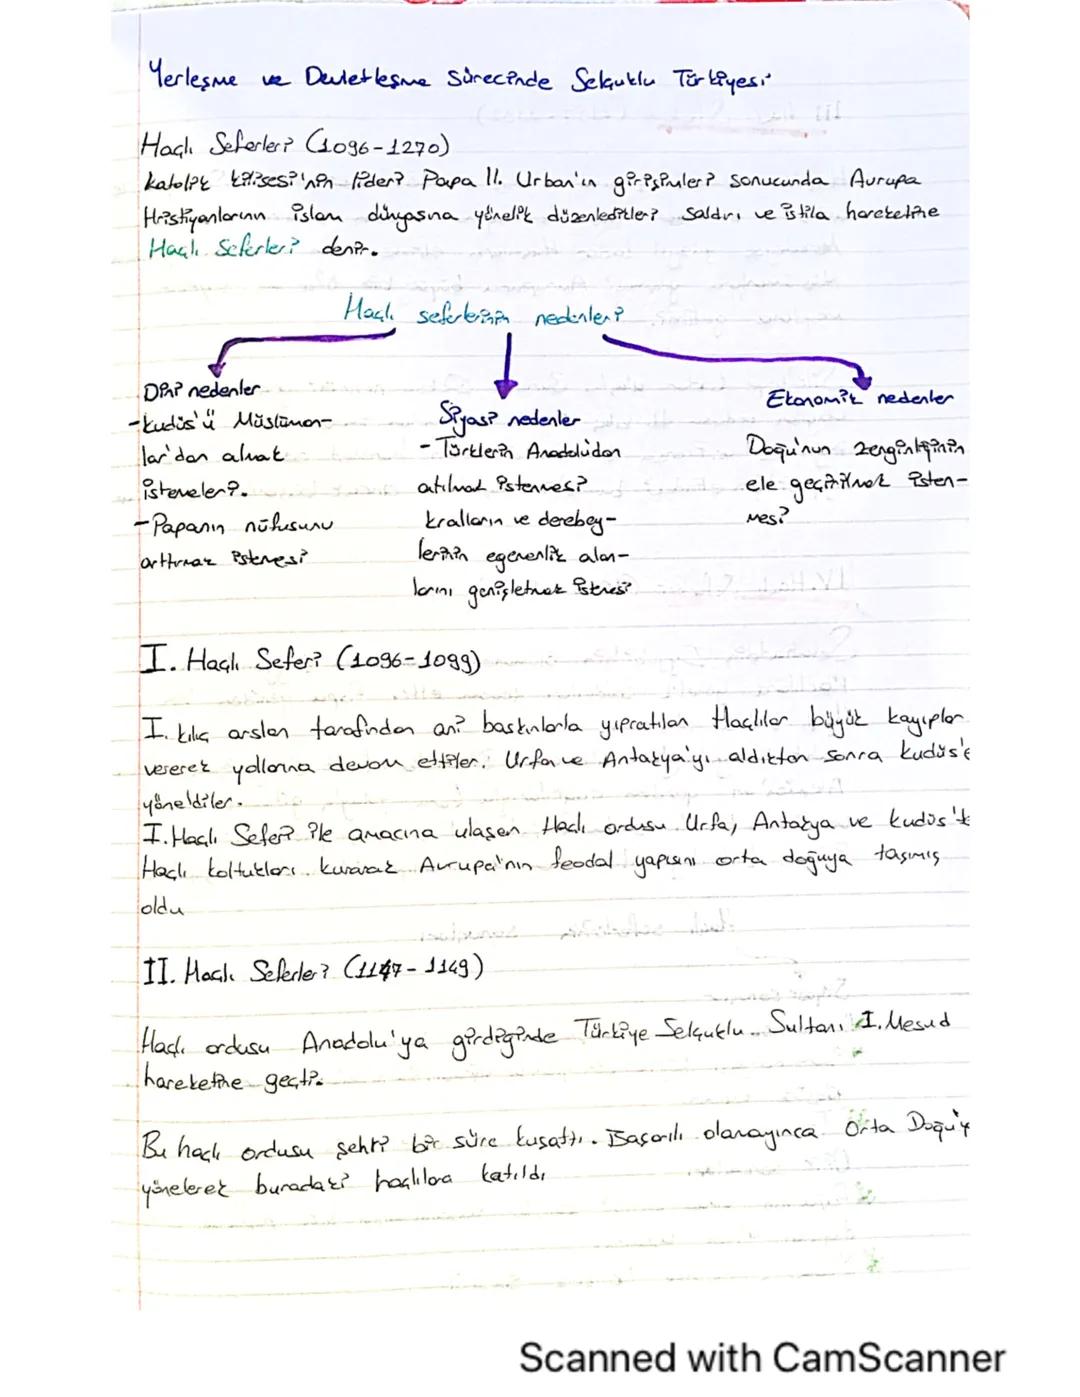 Yerleşme ve Devletleşme Sürecinde Selçuklu Türkiyesi
Haçlı Seferleri (1096-1270)
Katolik kilisesi'nin lideri Papa II. Urban'ın girişimleri sonucunda Avrupa
Hristiyanlarının islam dünyasına yönelik düzenledikleri saldırı ve istila hareketine
Haçlı Seferleri denir.
Haçlı seferlerinin nedenleri
Dini nedenler
-Kudüs'ü Müslüman-
lar'dan almak
istemeleri.
-Papanın nüfusunu
arttırmak istemesi
Siyasi nedenler
-Türklerin Anadolu'dan
atılmak istenmesi
kralların ve derebey-
lerinin egemenlik alan-
larını genişletmek istemesi
Ekonomik nedenler
Doğu'nun zenginliğinin
ele geçirilmek isten-
mesi
I. Haçlı Seferi (1096-1099)
I. kılıç arslan tarafından ani baskınlarla yıpratılan Haçlılar büyük kayıplar
vererek yollarına devam ettiler. Urfa ve Antakya'yı aldıktan sonra kudüs'e
yöneldiler.
I. Haçlı Seferi ile amacına ulaşan Haçlı ordusu Urfa, Antakya ve kudüs'te
Haçlı koltukları kurarak Avrupa'nın feodal yapısını orta doğuya taşımış
oldu
II. Haçlı Seferleri (1147-1149)
Haçlı ordusu Anadolu'ya girdiğinde Türkiye Selçuklu Sultanı I. Mesud
harekethe geçti.
Bu haçlı ordusu şehri bir süre kuşattı. Başarılı olamayınca Orta Doğu'y
yönelerek buradaki haçlılara katıldı
Scanned with CamScanner